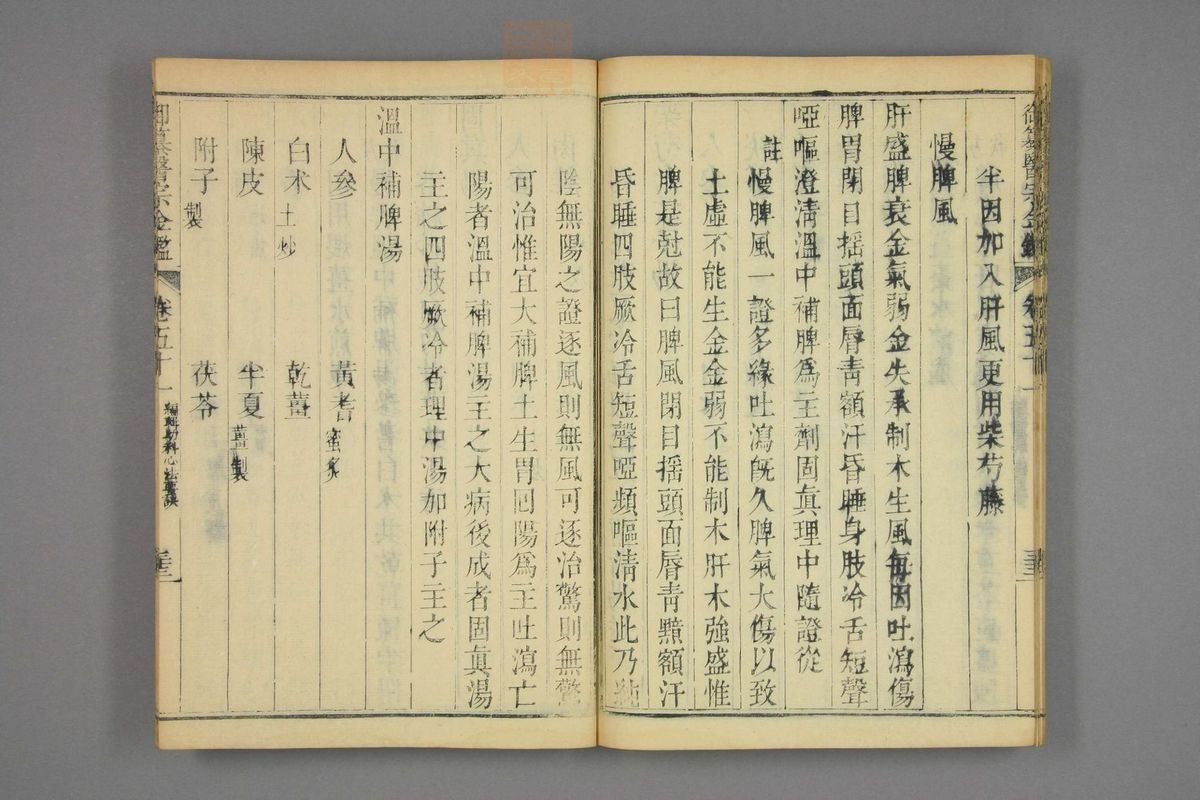 半因加入肝風更用柴芍藤
慢脾風
肝盛脾衰金氣弱金失承制木生風每因吐瀉傷
脾胃閉目揺頭面唇靑額汗昏睡身肢冷舌短聲
啞嘔澄淸溫中補脾爲主劑固眞理中隨證從
註慢脾風一證多緣吐瀉旣久脾氣大傷以致
土虛不能生金金弱不能制木肝木強盛惟
脾是尅故曰脾風閉目揺頭面唇靑黯額汗
昏睡四肢厥冷舌短聲啞頻嘔淸水此乃純
陰無陽之證逐風則無風可逐治驚則無驚
可治惟宜大補脾土生胃回陽爲主吐瀉亡
陽者溫中補脾湯主之大病後成者固眞湯
主之四肢厥冷者理中湯加附子主之
溫中補脾湯
人參 黃耆 蜜炙
白朮 土炒 乾薑
陳皮 半夏 薑製
附子 製 茯苓
御纂醫宗金鑑 卷五十一 編輯幼科心法要訣 三三
御纂醫宗金鑑 卷五十一